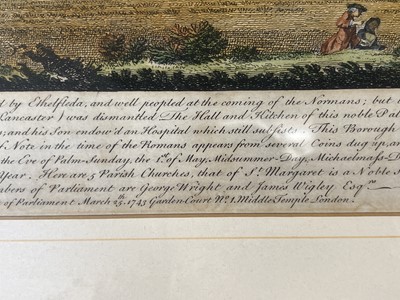 d by Ethelfleda, and well peopled at the coming of the Normans; but i
Lancaster) was dismantled The Hall and Kitchen of this noble Pal
; and his Son endow'd an Hospital which still subsists. This Borough
f Note in the time of the Romans appears from several Coins dug up, an
the Eve of Palm-Sunday, the 1st of May, Midsummer-Day, Michaelmass-D
Year. Here are 5 Parish Churches, that of St. Margaret is a Noble
bers of Parliament are George Wright and James Wigley Esqrs
of Parliament. March 25th 1743 Garden Court No. 1. Middle Temple London.